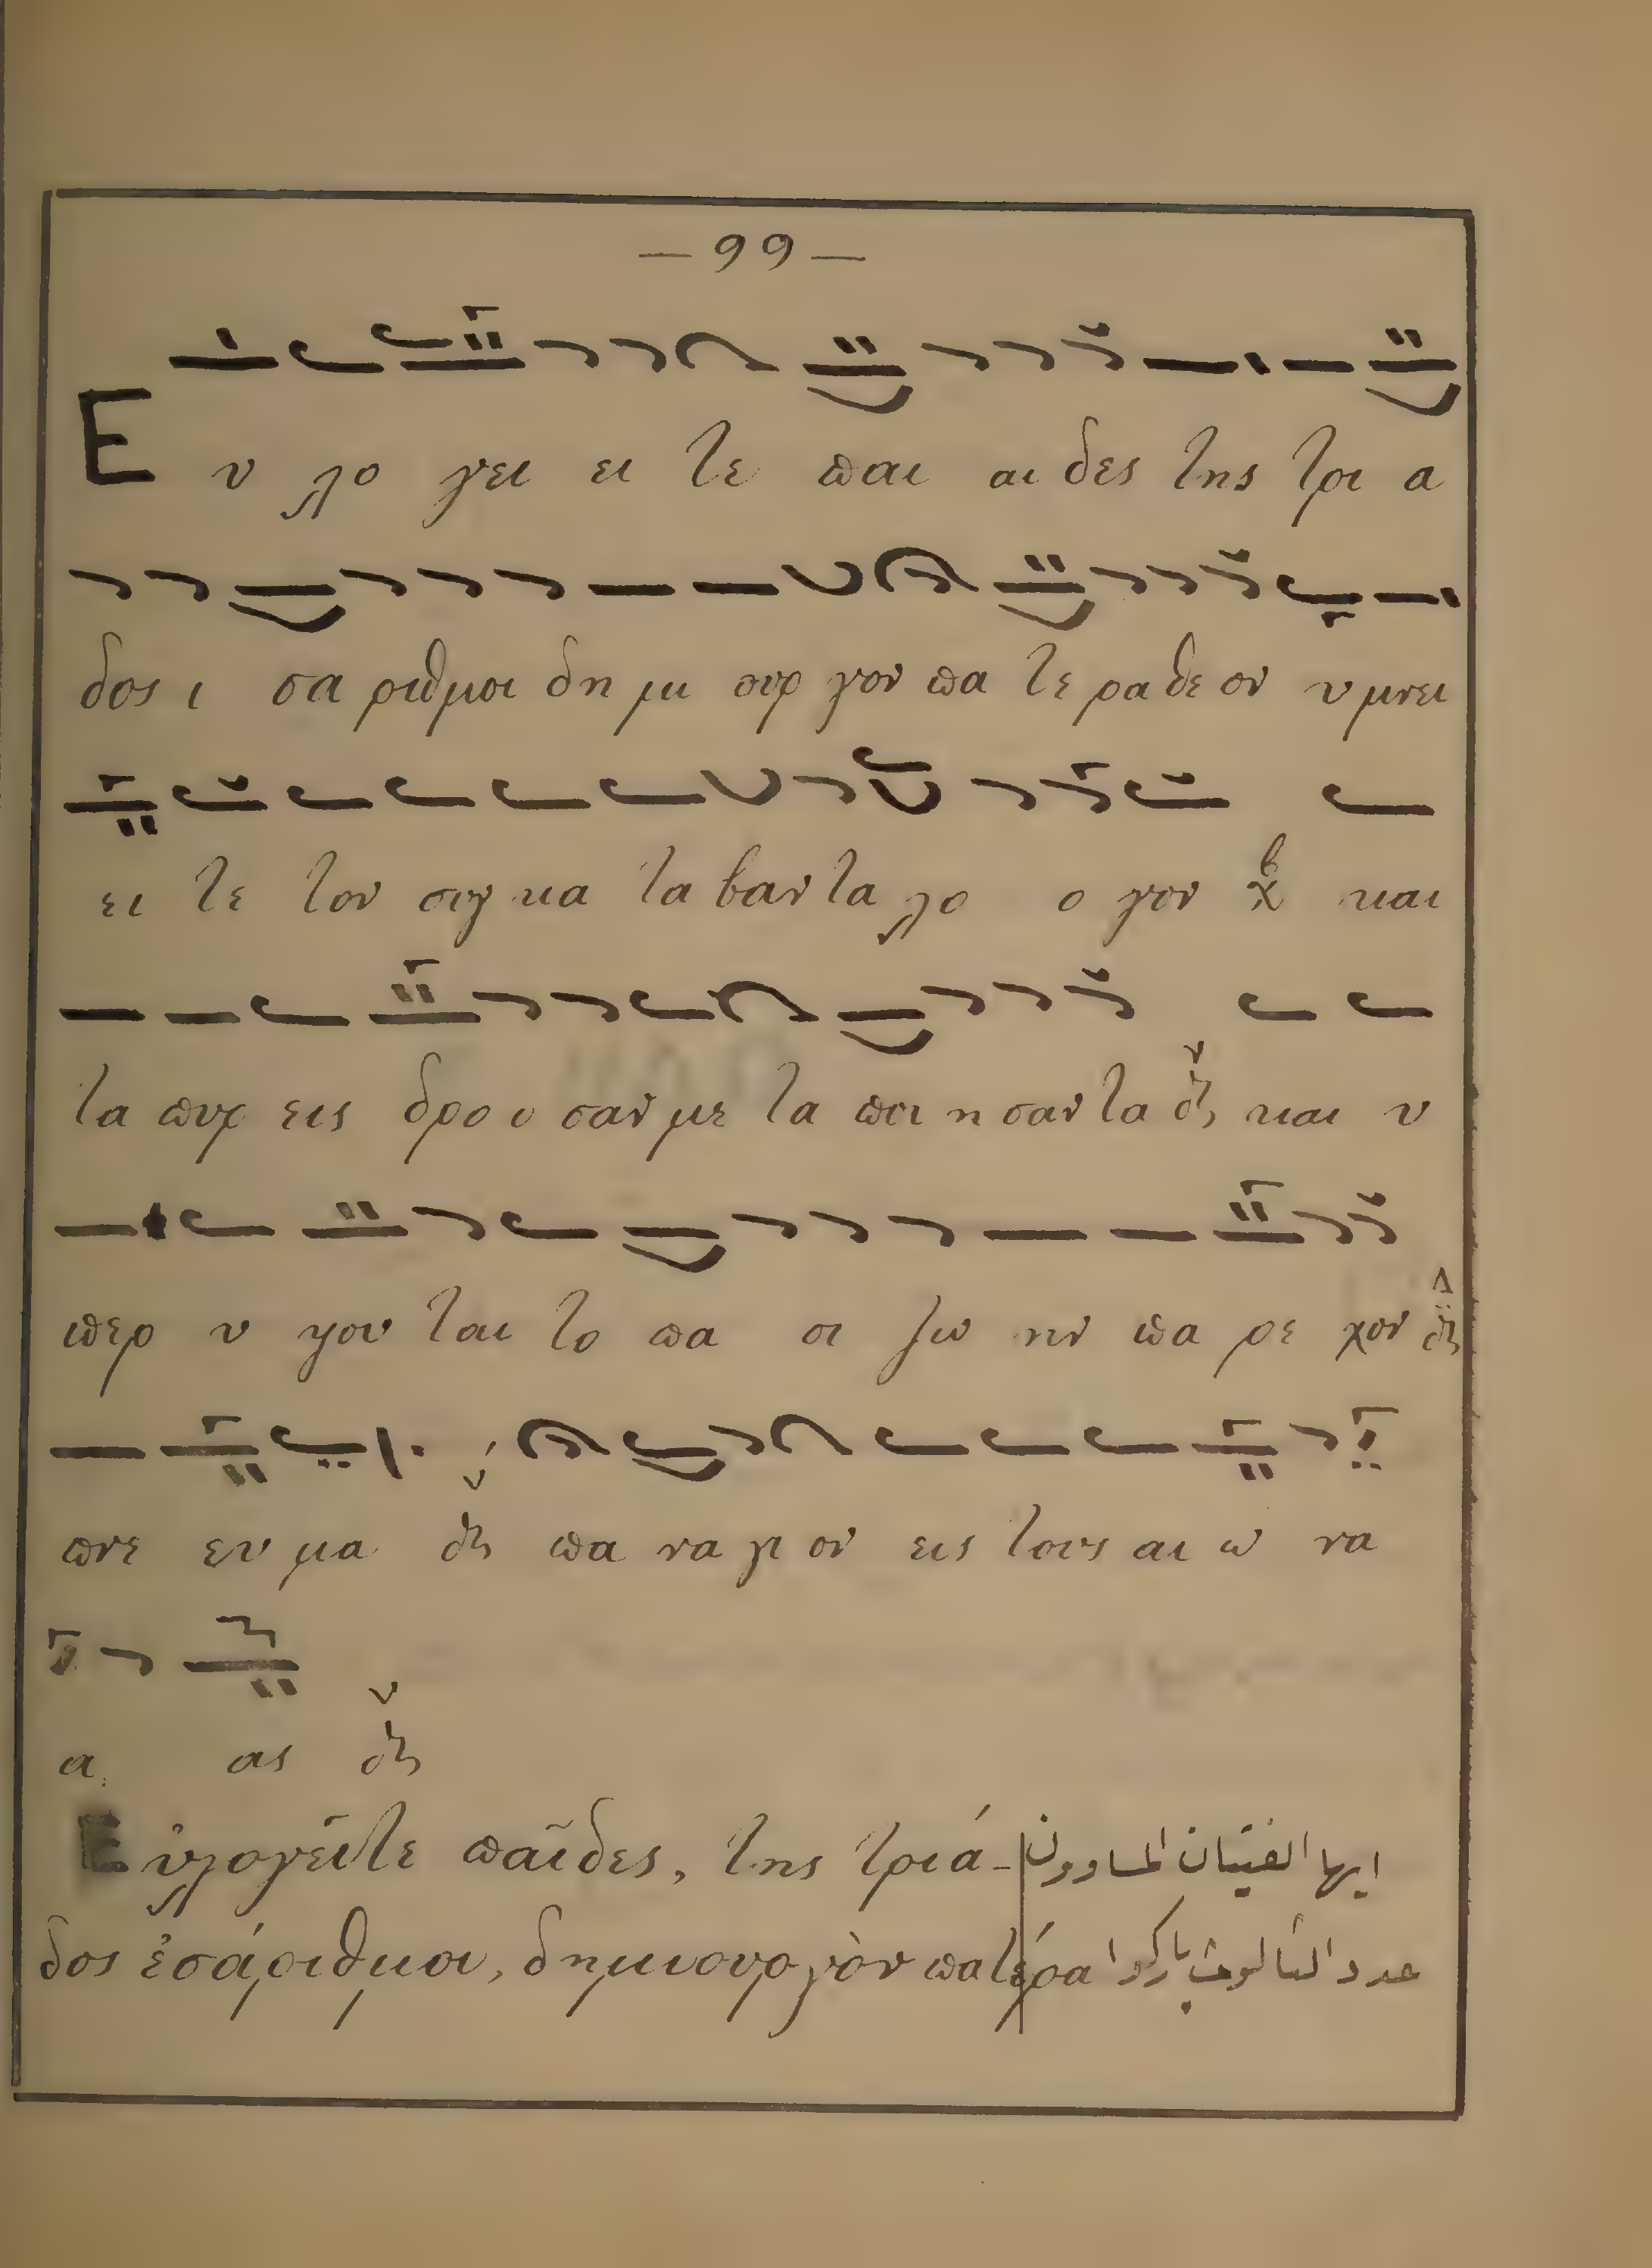 — 99 —
Ε υ λο γει ει τε παι αι δες της τρι α
δος ι σα ριθμοι δη μι ουρ γον πα τε ρα θε ον υ μνει
ει τε τον συγ κα τα βαν τα λο ο γον και
τα πυρ εις δρο ο σον με τα ποι η σαν τα και υ
περ υ ψου ται το πα σι ζω ην πα ρε χον Δ
πνε ευ μα πα να γι ον εις τους αι ω να
α ας
Εὐλογεῖτε παῖδες, της τριά- ايها الفتيان المساوون
δος ἰσάριθμοι, δημιουργὸν πατέρα عدد الثالوث باركوا